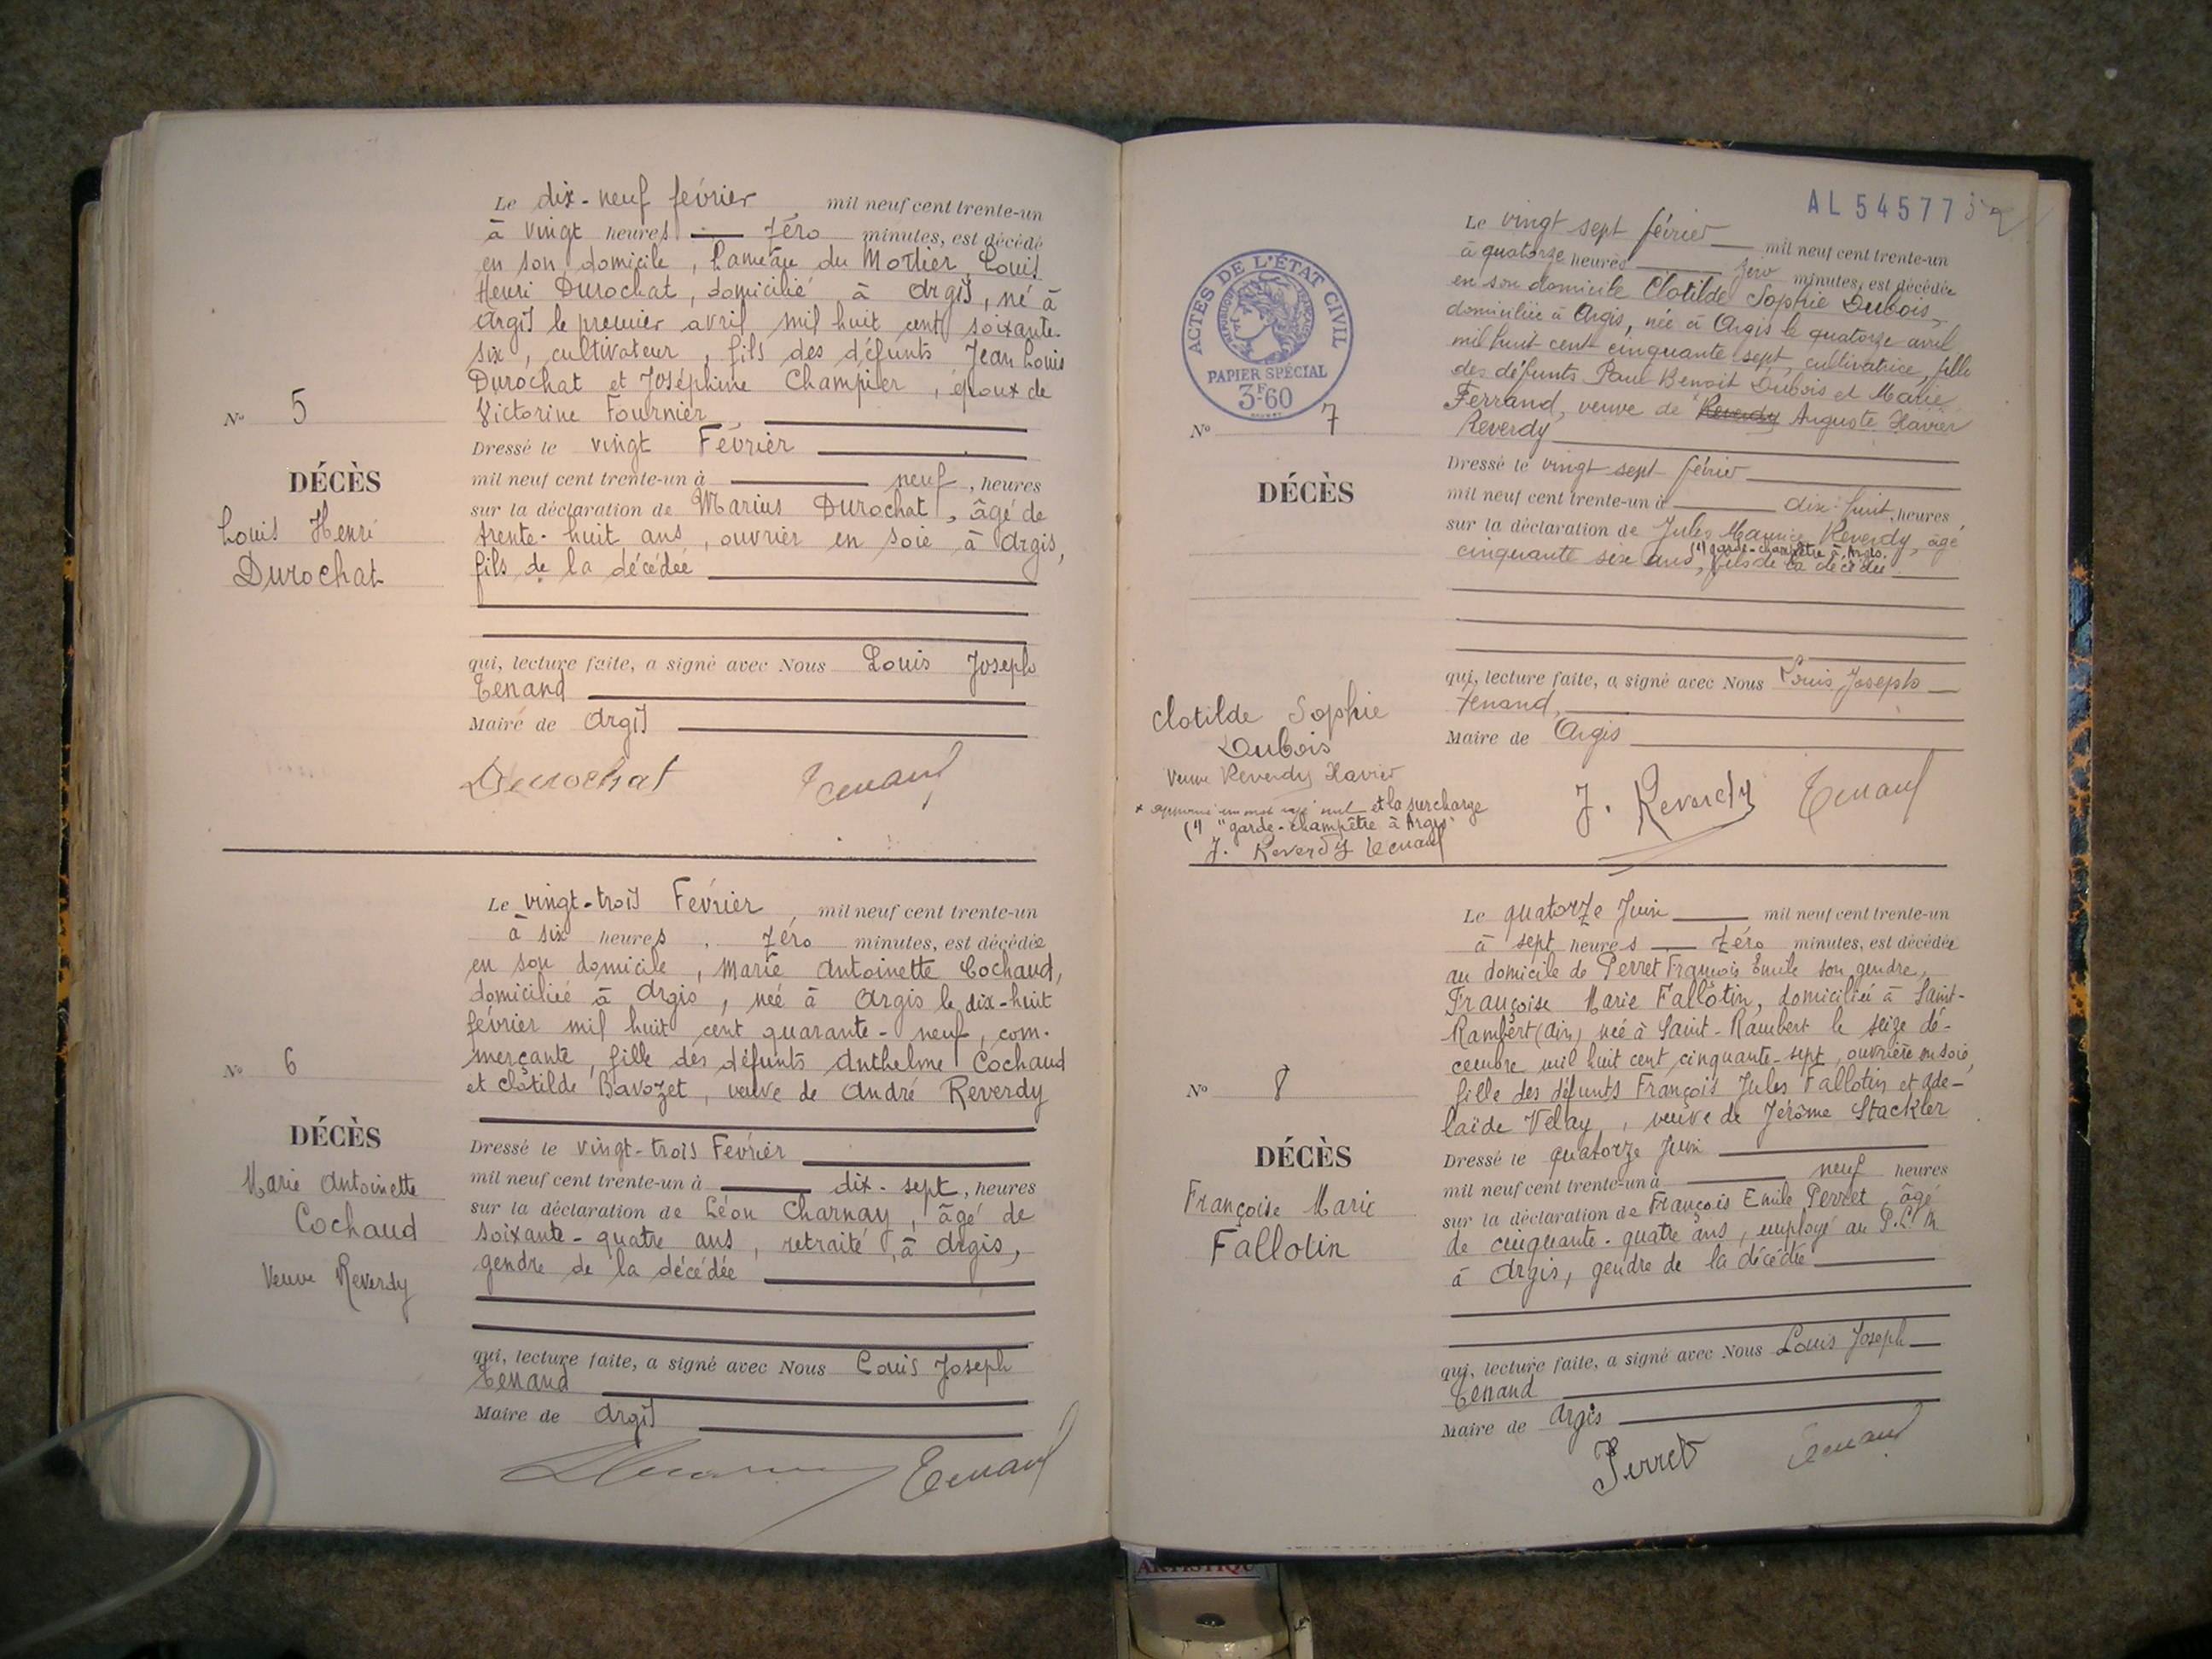 Le dix-neuf février mil neuf cent trente-un
à vingt heures zéro minutes, est décédé
en son domicile, hameau du Mortier, Louis
Henri Durochat, domicilié à Argis, né à
Argis le premier avril mil huit cent soixante-
six, cultivateur, fils des défunts Jean Louis
Durochat et Joséphine Champier, époux de
Victorine Fournier
Nº 5
Dressé le vingt Février
mil neuf cent trente-un à neuf, heures
DÉCÈS
Louis Henri
Durochat
sur la déclaration de Marius Durochat, âgé de
trente-huit ans, ouvrier en soie à Argis,
fils de la décédée
qui, lecture faite, a signé avec Nous Louis Joseph
Tenand
Maire de Argis
Durochat Tenand
Le vingt-trois Février, mil neuf cent trente-un
à six heures, zéro minutes, est décédée
en son domicile, Marie Antoinette Cochaud,
domiciliée à Argis, née à Argis le dix-huit
février mil huit cent quarante-neuf, com-
merçante, fille des défunts Anthelme Cochaud
et Clotilde Bavozet, veuve de André Reverdy
Nº 6
DÉCÈS
Marie Antoinette
Cochaud
Veuve Reverdy
Dressé le vingt-trois Février
mil neuf cent trente-un à dix-sept, heures
sur la déclaration de Léon Charnay, âgé de
soixante-quatre ans, retraité, à Argis,
gendre de la décédée
qui, lecture faite, a signé avec Nous Louis Joseph
Tenand
Maire de Argis
Tenand
AL 54577
ACTES DE L'ÉTAT CIVIL
RÉPUBLIQUE FRANÇAISE
PAPIER SPÉCIAL
3F60
Le vingt sept février mil neuf cent trente-un
à quatorze heures zéro minutes, est décédée
en son domicile Clotilde Sophie Dubois,
domiciliée à Argis, née à Argis le quatorze avril
mil huit cent cinquante sept, cultivatrice, fille
des défunts Paul Benoit Dubois et Marie
Ferrand, veuve de Reverdy Auguste Xavier
Reverdy
Nº 7
DÉCÈS
Dressé le vingt sept février
mil neuf cent trente-un à dix-huit, heures
sur la déclaration de Jules Maurice Reverdy, âgé
(1) garde-champêtre à Argis.
cinquante six ans, fils de la décédée
qui, lecture faite, a signé avec Nous Louis Joseph
Tenand,
Maire de Argis
Clotilde Sophie
Dubois
Veuve Reverdy Xavier
x approuvé un mot rayé nul et la surcharge
(1) "garde-champêtre à Argis"
J. Reverdy Tenand
J. Reverdy Tenand
Le quatorze Juin mil neuf cent trente-un
à sept heures zéro minutes, est décédée
au domicile de Perret François Emile son gendre,
Françoise Marie Fallotin, domiciliée à Saint-
Rambert (Ain) née à Saint-Rambert le seize dé-
cembre mil huit cent cinquante-sept, ouvrière en soie,
fille des défunts François Jules Fallotin et Adé-
laïde Velay, veuve de Jérôme Stackler
Nº 8
DÉCÈS
Françoise Marie
Fallotin
Dressé le quatorze Juin
mil neuf cent trente-un à neuf heures
sur la déclaration de François Emile Perret, âgé
de cinquante-quatre ans, employé au P.L.M
à Argis, gendre de la décédée
qui, lecture faite, a signé avec Nous Louis Joseph
Tenand
Maire de Argis
Perret Tenand
ARTISTIQUE